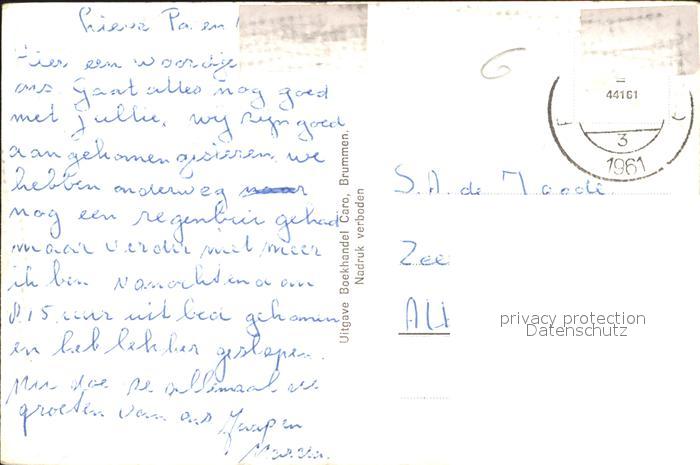 Lieve Pa en
Hier een woordje
ons. Gaat alles nog goed
met jullie, wij zijn goed
aangekomen gisteren. we
hebben onderweg
nog een regenbui gehad
maar verder niet meer
ik ben vanochtend om
8.15 uur uit bed gekomen
en heb lekker geslapen.
Nu doe ze allemaal de
groeten van ons Jaap en
Uitgave Boekhandel Caro, Brummen.
Nadruk verboden
6
44161
3
1961
S.A. de
Zee
privacy protection
Datenschutz